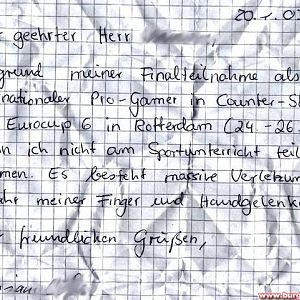 20.1.0
geehrter Herr
grund meiner Finalteilnahme als
nationaler Pro-Gamer in Counter-St
Eurocup 6 in Rotterdam (24.-26.
nn ich nicht am Sportunterricht teil
men. Es besteht massive Verletzun
ahr meiner Finger und Handgelenke
freundlichen Grüßen,
www.burc